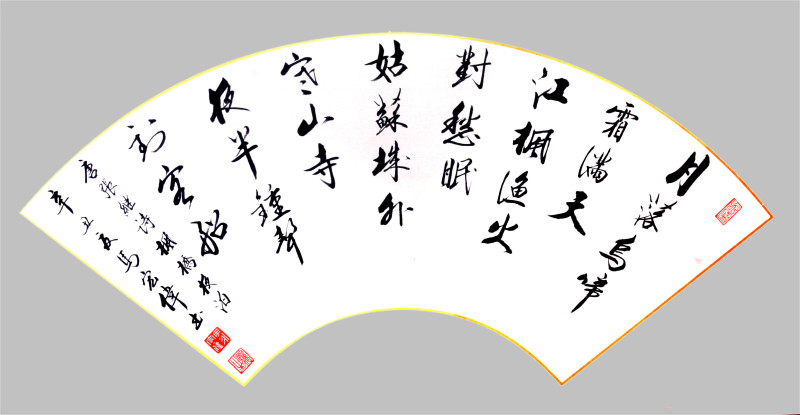 月落烏啼
霜滿天
江楓漁火
對愁眠
姑蘇城外
寒山寺
夜半鐘聲
到客船
唐張继诗楓橋夜泊
辛丑夏馬宏偉书